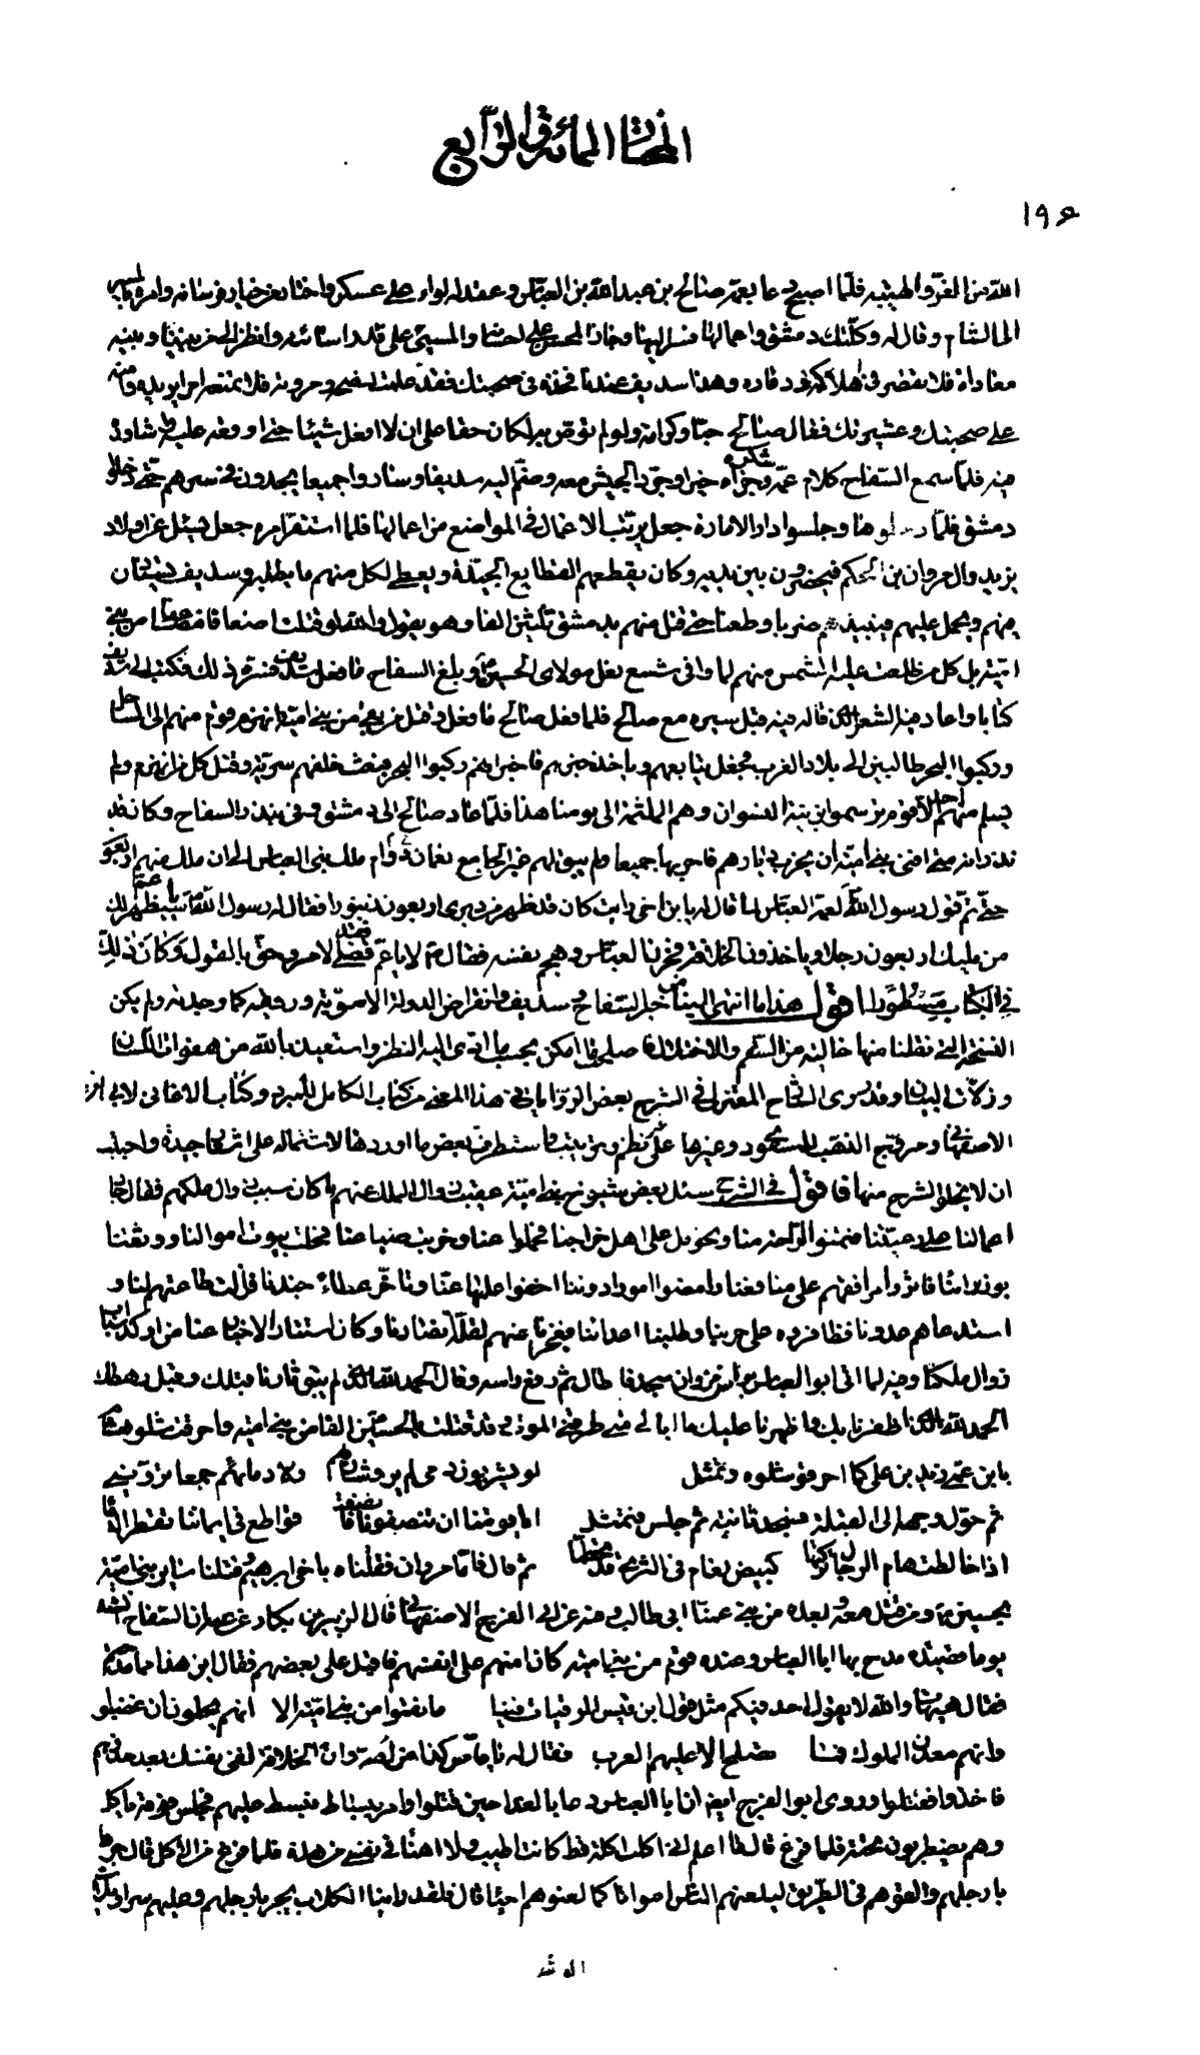 الخطبة المائة والرابع
١٩۶
الله من العزّ والهيبة فلمّا اصبح دعا بعمّه صالح بن عبدالله بن العباس وعقد له لواء على عسكر واختار من خيار فرسانه وامره بالمسير
الى الشام وقال له وكلّتك دمشق واعمالها فسر اليها وجاز المحسن على احسانه والمسيئ على قدر اسائته وانظر الى من بيننا وبينه
معاداة فلا تقصر في اهلاكه وهذا سديف عندنا فخذه في صحبتك فقد علمت نصحه
على صحبتك وعشيرتك فقال صالح حبّا وكرامة ولو لم توص به لكان حقا على ان لا افعل شيئا حتى اوقفه عليه
منه فلمّا سمع السفاح كلام عمّه شكره وجزاه خيرا وجهّز الجيش معه وضمّ اليه سديفا وساروا جميعا يجدون في سيرهم حتّى دخلوا
دمشق فلمّا وجلسوا دار الامارة جعل يرتب الاعمال في المواضع من اعمالها فلما استقرّ امره جعل يسئل عن اولاد
يزيد وال مروان بن الحكم فيحضرون بين يديه وكان يقطعهم القطايع الجيّدة ويعطى لكل منهم ما يطلبه وسديف
منهم ويحمل عليهم ضربا وطعنا حتى قتل منهم بدمشق ثلثين الفا وهو يقول والله لو قتلت
اميّة بل كل من طلعت عليه الشمس منهم لما وافى شسع نعل مولاى الحسين وبلغ السفاح ما فعل سديف فسرّه ذلك فكتب الى سديف
كتابا واعاد فيه الشعر الذى قاله فيه قبل سيره مع صالح فلما فعل صالح ما فعل وقتل من بنى اميّة انهزم قوم منهم الى الساحل
وركبوا البحر طالبين الى بلاد الغرب فجعل يتابعهم وياخذ خبرهم فاخبر انهم ركبوا البحر فبعث خلفهم سريّة وقتل كل من انهزم ولم
يسلم منهم احد الّا قوم تزيّنوا بزينة النسوان وهم الملثمة الى يومنا هذا فلمّا عاد صالح الى دمشق وفى بنذر السفاح وكان قد
نذر انه متى افنى بنى اميّة ان يخرب ديارهم فاخربها جميعا ولم يبق لهم غير الجامع ودام ملك بنى العباس الى ان ملك منهم اربعون
حتّى تمّ قول رسول الله لعمّه العباس لما قال له يابن اخى رايت كان قد ظهر من دبرى اربعون زنبورا فقال له رسول الله يا عمّ يظهر
من صلبك اربعون رجلا وياخذون الخلافة العباس وهمّ بجبّ نفسه فقال لا يا عمّ قد قضى الامر وحقّ القول وكان ذلك
في الكتاب مسطورا اقول هذا ما انتهى الينا من خبر السفاح وسديف وانقراض الدولة الامويّة وروقته كما وجدته ولم يكن
النسخة التى نقلنا منها خالية من السقم والاختلال فاصلحناها ما امكن بحسب ما ادّى اليه النظر واستعيذ بالله من هفوات اللسان
وزلّات البيان وقد روى الشارح المعتزلى في الشرح بعض الروايات في هذا المعنى من كتاب الكامل للمبرد وكتاب الاغانى لابى الفرج
الاصفهانى ومروج الذهب للمسعودى وغيرها على نظم وترتيب يستطرف بعض ما اوردها لاشتماله على اشعار جيدة واحببت
ان لا يخلو الشرح منها فاقول في الشرح سئل بعض شيوخ بنى اميّة عقيب زوال الملك عنهم ما كان سبب زوال ملككم فقال جار
اعمالنا على رعيّتنا فتمنّوا الراحة منّا وتحومل على اهل خراجنا فجلوا عنّا وخربت ضياعنا فخلت بيوت اموالنا ووثقنا
بوزرائنا فآثروا مرافقهم على منافعنا وامضوا امورا دوننا اخفوا علمها عنّا وتاخّر عطاء جندنا فزالت طاعتهم لنا و
استدعاهم عدونا فظافروه على حربنا وطلبنا اعدائنا فعجزنا عنهم لقلة انصارنا وكان استتار الاخبار عنا من اوكد اسباب
زوال ملكنا وفيه لما اتى ابو العباس براس مروان سجد فاطال ثم رفع راسه وقال الحمد لله الذى لم يبق ثارنا قبلك وقبل رهطك
الحمد لله الذى اظفرنا بك واظهرنا عليك ما ابالى متى طرقنى الموت قد قتلت بالحسين الفا من بنى اميّة واحرقت شلو هشام
بابن عمّى زيد بن على كما احرقوا شلوه وتمثّل لو يشربون دمى لم يرو شاربهم ولا دمائهم جمعا تروّينى
ثم حوّل وجهه الى القبلة فسجد ثانية ثم جلس فتمثل ابى قومنا ان ينصفونا فانصفت قواطع في ايماننا تقطر الدّما
اذا خالطت هام الرجال تركتها كبيض نعام في الثرى قد تحطّما ثم قال فامّا مروان فقتلناه باخى ابرهيم وقتلنا ساير بنى اميّة
بحسين ومن قتل معه وبعده من بنى عمّنا ابى طالب وفيه عن ابى الفرج الاصفهانى قال الزبير بن بكار عن عمّه ان السفاح انشد
يوما قصيدة مدح بها ابا العباس وعنده قوم من بنى اميّة كان آمنهم على انفسهم فاقبل على بعضهم فقال اين هذا مما مدحتم
فقال هيهات والله لا يقول احد فيكم مثل قول ابن قيس الرقيات فينا ما نقموا من بنى اميّة الا انهم يحلمون ان غضبوا
وانهم معدن الملوك فما تصلح الا عليهم العرب فقال له يا ماصّ كذا من امّه وان الخلافة لفى نفسك بعد خذوهم
فاخذوا فقتلوا وروى ابو الفرج ايضا ان ابا العباس دعا بالغداء حين قتلوا وامر ببساط فبسط عليهم فجلس فوقه ياكل
وهم يضطربون تحته فلما فرغ قال ما اعلم انى اكلت اكلة قط كانت اطيب ولا اهنأ في نفسى من هذه فلما فرغ من الاكل قال جرّوا
بارجلهم والقوهم في الطريق ليلعنهم الناس امواتا كما لعنوهم احياء قال فلقد راينا الكلاب يجرّ بارجلهم وعليهم سراويلات
الوشى